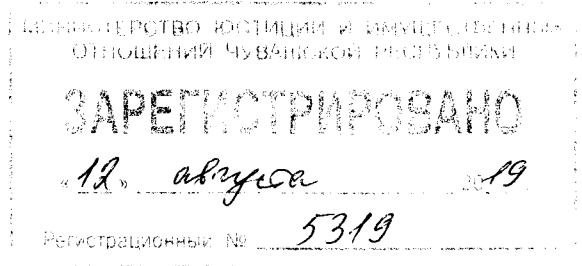 МИНИСТЕРСТВО ЮСТИЦИИ И ИМУЩЕСТВЕННЫХ
ОТНОШЕНИЙ ЧУВАШСКОЙ РЕСПУБЛИКИ
ЗАРЕГИСТРИРОВАНО
«12» августа 2019
Регистрационный № 5319